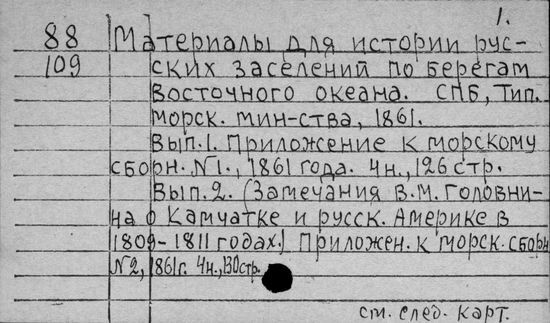 1.
88 Материалы для истории рус-
109 ских заселений по берегам
Восточного океана. СПБ, Тип.
морск. мин-ства, 1861.
Вып. 1. Приложение к морскому
сборн. №1., 1861 года. 4н., 126 стр.
Вып. 2. (Замечания В.М. Головни-
на о Камчатке и русск. Америке в
1809-1811 годах.) Приложен. к морск. сборн
№2, 1861г. 4н., 130 стр.
см. след. карт.